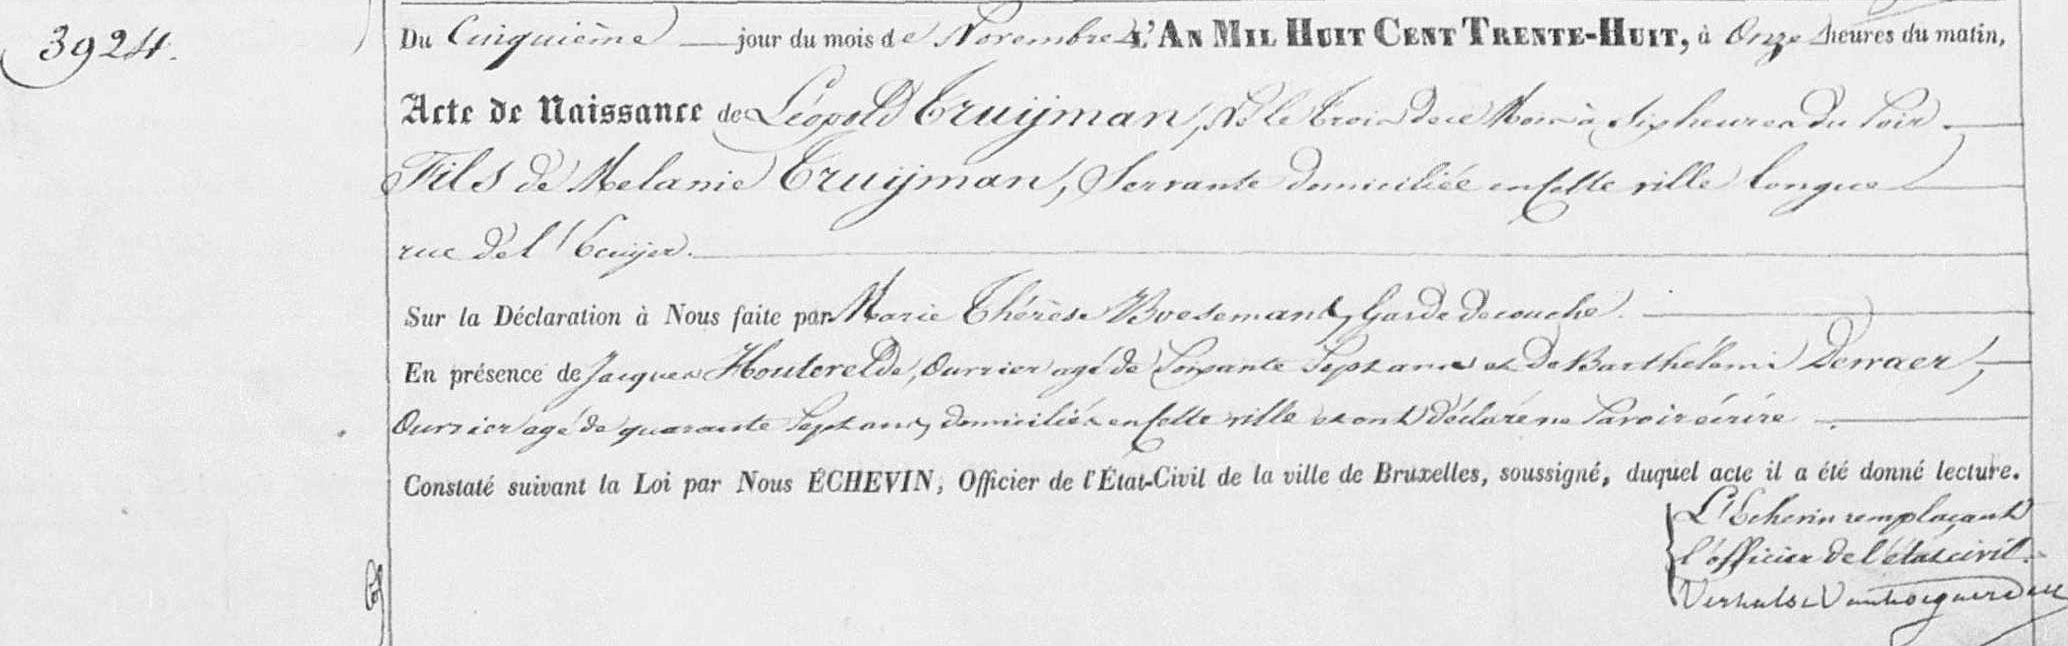 3924.
Du Cinquième jour du mois de Novembre L'AN MIL HUIT CENT TRENTE-HUIT, à Onze heures du matin,
Acte de Naissance de Léopold Truijman, Né le trois de ce Mois à Six heures du Soir.
Fils de Melanie Truijman, Servante domiciliée en Cette ville longue
rue de l'Ecuijer.
Sur la Déclaration à Nous faite par Marie Thérèse Boesemans, Garde de couche.
En présence de Jacques Houtevelde, Ouvrier agé de Soixante Sept ans et de Barthélemi Dewaer,
Ouvrier agé de quarante Sept ans, domiciliés en Cette ville et ont déclaré ne Savoir écrire.
Constaté suivant la Loi par Nous ÉCHEVIN, Officier de l'État-Civil de la ville de Bruxelles, soussigné, duquel acte il a été donné lecture.
L'Echevin remplaçant
l'officier de l'état civil.
Verhulst